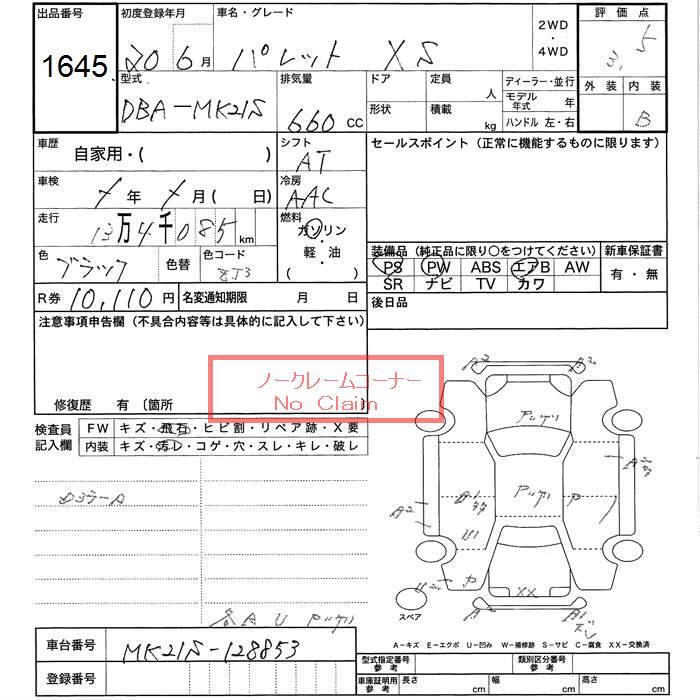 出品番号 初度登録年月 車名・グレード 2WD・4WD 評価点
1645 20 6月 パレット XS 3.5
型式 排気量 ドア 定員 人 ディーラー・並行 外装 内装
DBA-MK21S 660 CC 形状 積載 kg モデル年式 年 B
ハンドル 左・右
車歴 自家用・( ) シフト AT セールスポイント (正常に機能するものに限ります)
車検 年 月( 日) 冷房 AAC
走行 13万4千085 km 燃料 ガソリン・軽・油 ( )
装備品 (純正品に限り○をつけてください) 新車保証書
色 ブラック 色替 色コード ZJ3 PS PW ABS エアB AW 有・無
SR ナビ TV カワ
R券 10,110円 名変通知期限 月 日 後日品
注意事項申告欄 (不具合内容等は具体的に記入して下さい)
ノークレームコーナー
No Claim
修復歴 有 〔箇所
検査員記入欄 FW キズ・飛石・ヒビ割・リペア跡・X要
内装 キズ・汚レ・コゲ・穴・スレ・キレ・破レ
A2 A2
A2
A2
A1
U2
XX
スペア
A2 A1
A U
車台番号 MK21S-128853
A-キズ E-エクボ U-凹み W-補修跡 S-サビ C-腐食 XX-交換済
登録番号 型式指定番号 参考 類別区分番号 参考
車庫証明用 参考 長さ cm 幅 cm 高さ cm